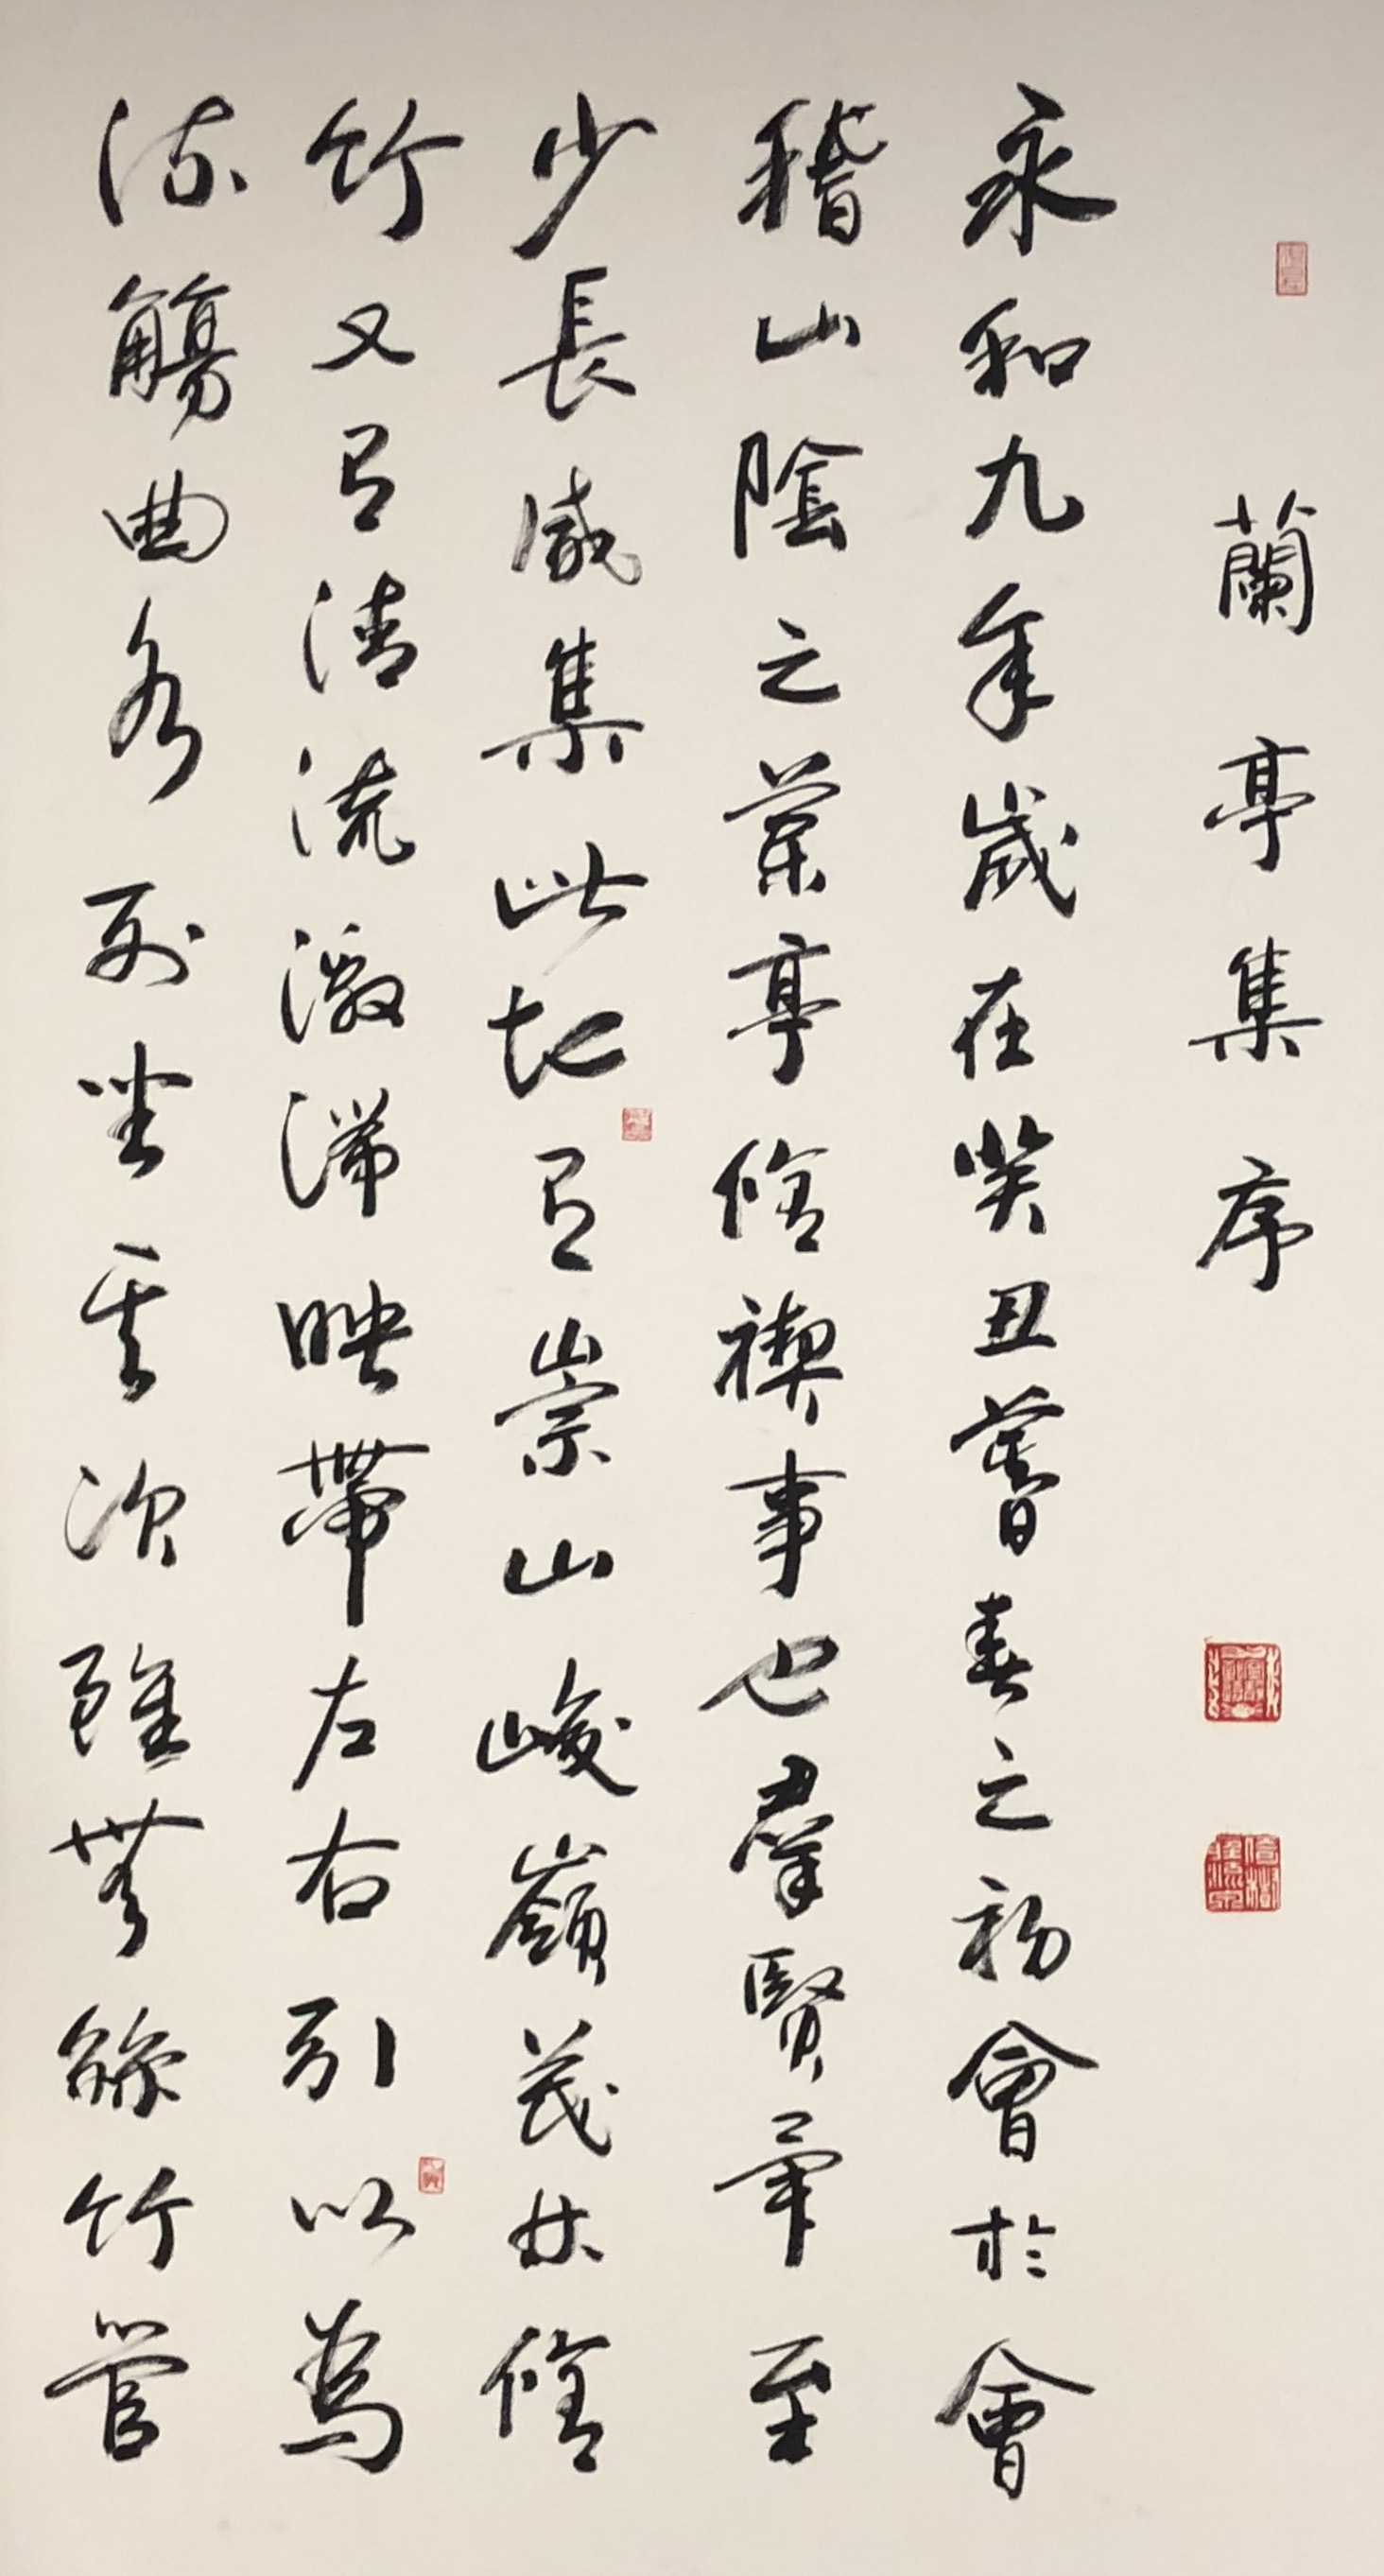 蘭亭集序
永和九年歲在癸丑暮春之初會於會
稽山陰之蘭亭脩禊事也羣賢畢至
少長咸集此地有崇山峻嶺茂林脩
竹又有清流激湍映帶左右引以為
流觴曲水列坐其次雖無絲竹管